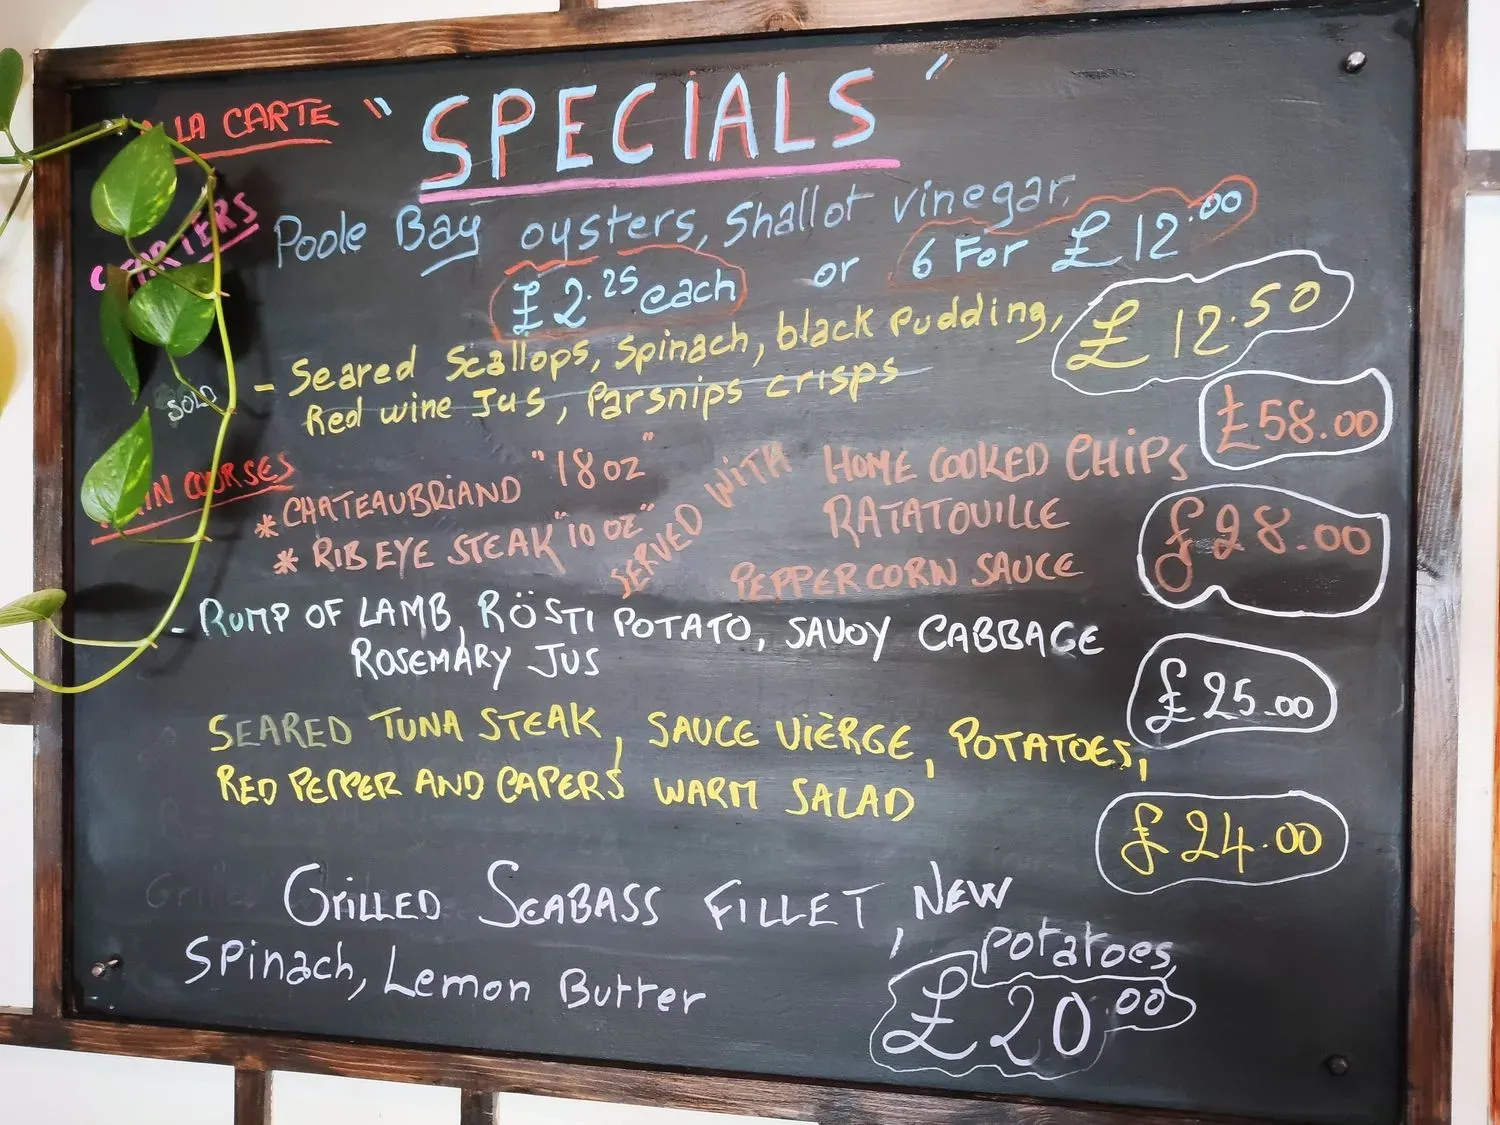 LA CARTE " SPECIALS '
STARTERS
Poole Bay oysters, Shallot vinegar,
£2.25 each or 6 For £12.00
- Seared Scallops, Spinach, black Pudding, £12.50
Red wine Jus, Parsnips crisps
SOLD
MAIN COURSES
* CHATEAUBRIAND "18 oz" £58.00
* RIB EYE STEAK "10 oz" £28.00
SERVED WITH
HOME COOKED CHIPS
RATATOUILLE
PEPPERCORN SAUCE
- RUMP OF LAMB, RÖSTI POTATO, SAVOY CABBAGE
ROSEMARY JUS £25.00
SEARED TUNA STEAK, SAUCE VIÈRGE, POTATOES,
RED PEPPER AND CAPERS WARM SALAD £24.00
GRILLED SEABASS FILLET, NEW
Potatoes,
Spinach, Lemon Butter £20.00